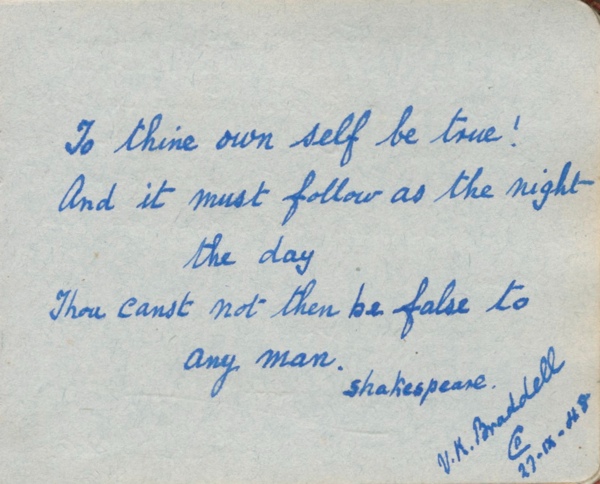 To thine own self be true!
And it must follow as the night
the day
Thou canst not then be false to
any man.
Shakespeare.
V.K. Braddell
27-IX-48